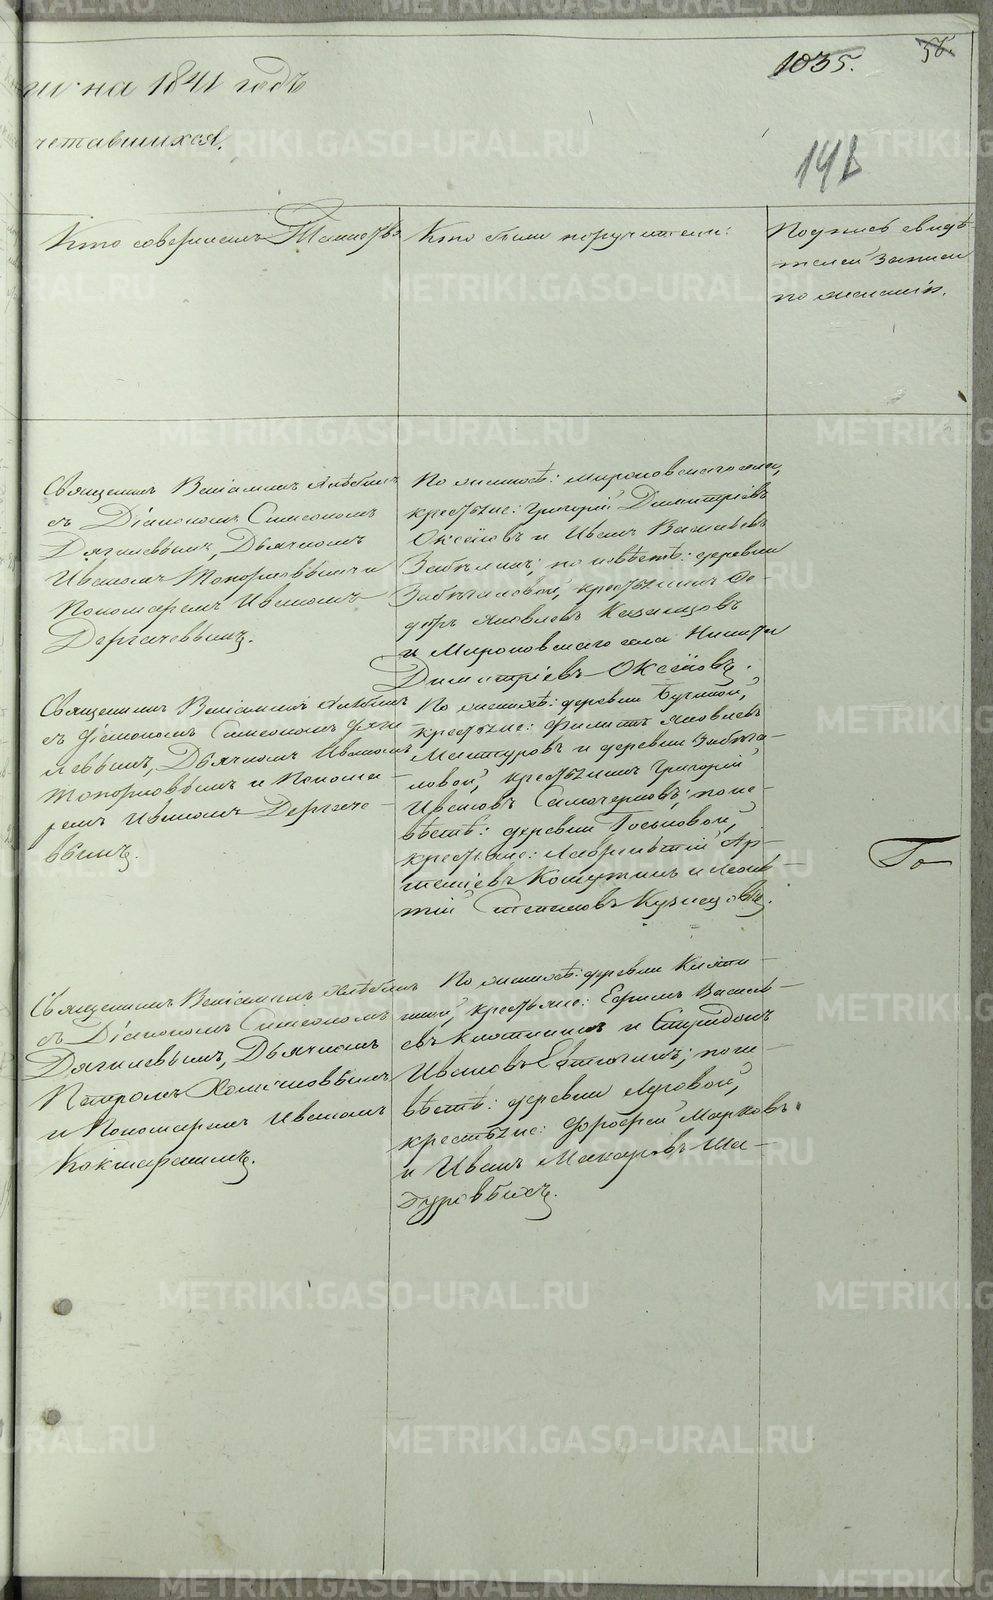 1035.
56.
на 1841 годъ
четавшихся.
141
Кто совершалъ Таинство
Кто были поручители:
Подпись свидѣ-
телей записи
по желанію.
Священникъ Веніаминъ
съ Діакономъ Симеономъ
Дягилевымъ, Дьячкомъ
Иваномъ Топорковымъ и
Пономаремъ Иваномъ
Дергачевымъ.
По женихѣ: Мироновскаго села,
крестьяне: Григорій Димитріевъ
Оксёновъ и Иванъ Васильевъ
по невѣстѣ: деревни
крестьянинъ Ѳе-
доръ Яковлевъ Казанцовъ
и Мироновскаго села Никита
Димитріевъ Оксёновъ.
Священникъ Веніаминъ
съ Діакономъ Симеономъ Дяги-
левымъ, Дьячкомъ Иваномъ
Топорковымъ и Понома-
ремъ Иваномъ Дергаче-
вымъ.
По женихѣ: деревни Бучиной,
крестьяне: Филипъ Яковлевъ
Мантуровъ и деревни
ловой, крестьянинъ Григорій
Ивановъ Самочерновъ; по не-
вѣстѣ: деревни Госьковой,
крестьяне: Лаврентій Ар-
темьевъ и Леон-
тій Степановъ Кузнецовы.
Го
Священникъ Веніаминъ
съ Діакономъ Симеономъ
Дягилевымъ, Дьячкомъ
Петромъ
и Пономаремъ Иваномъ
Кокшарскимъ.
По женихѣ: деревни Клоти-
ной, крестьяне: Ефимъ Василь-
евъ Клотининъ и Спиридонъ
Ивановъ Евтюгинъ; по не-
вѣстѣ: деревни Луговой,
крестьяне: Дорофей Марковъ
и Иванъ Макаровъ Ша-
дуровыхъ.
METRIKI.GASO-URAL.RU